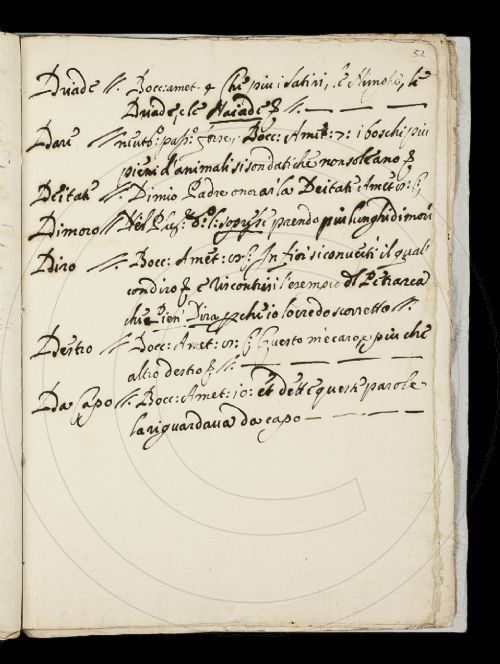 52
Driade //. Bocc: amet. 9 Che piu i Satiri, le Nimphe, le
Driade, e le Naiade //.
Dare //. neutro pass: forse, Bocc: Amet: i boschi piu
pieni d'animali si son dati che non soleano
Deitate //. Dimio Padre onorai la Deitate Amet:
Dimoro // Del prendo piu lunghi dimori
Diro //. Bocc: Amet: In fiori si convertì il qual
con diro e riscontrisi l'esempio del Petrarca
che Pien Dira perche io lo credo scorretto //.
Destro //. Bocc: Amet: Questo m'e caro e piu che
altro destro //.
Da Capo //. Bocc: Amet: 10: et dette queste parole
la riguardava da capo